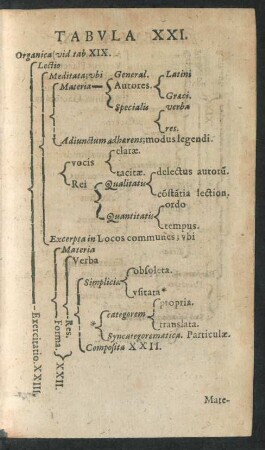 TABVLA XXI.
Organica vid tab XIX.
Lectio
Meditata; vbi General. Latini
Materia Autores.
Græci.
Specialis verba
res.
Adiunctum adhærens; modus legendi.
claræ.
vocis
tacitæ. delectus autorũ.
Rei Qualitatis
cõstãria lection.
ordo
Quantitatis
tempus.
Excerpta in Locos communes; vbi
Materia
Verba
obsoleta.
Simplicia
vsitata*
propria.
categorem
* translata.
Syncategorematica. Particulæ.
Composita XXII.
Res.
Forma, XXII.
Exercitatio. XXIII.
Mate-